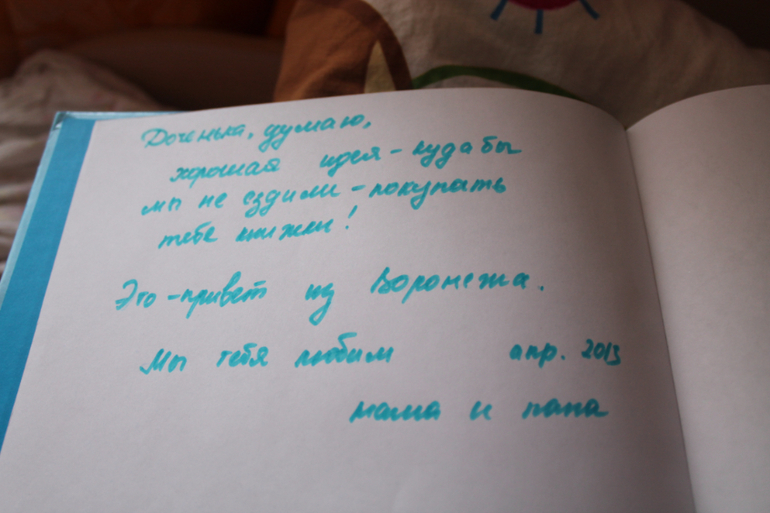 Доченька, думаю,
хорошая идея - куда бы
мы не ездили - покупать
тебе книжки!
Это - привет из Воронежа.
Мы тебя любим апр. 2013
мама и папа